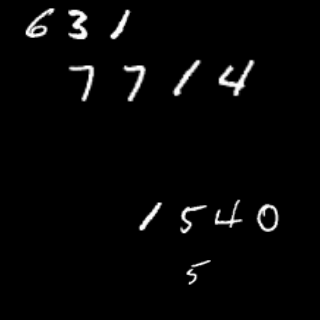 631
7714
1540
5